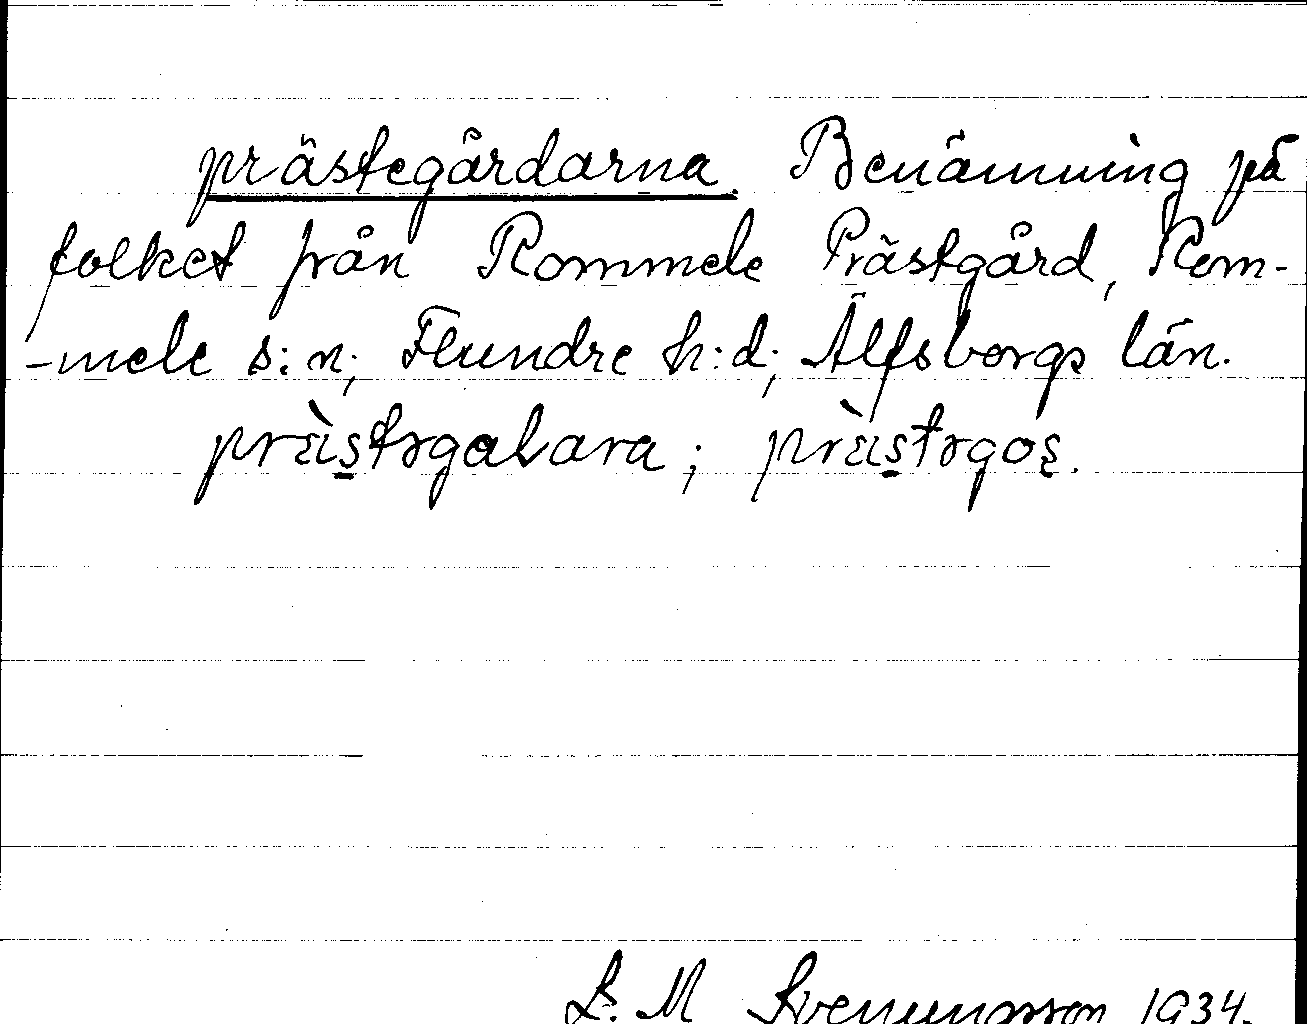 prästegårdarna. Benämning på
folket från Rommele Prästgård, Rom-
-mele s:n; Flundre h:d; Älfsborgs län.
präs̱təgaLara; präs̱təgoʂ.
L. M Svenungsson 1934.